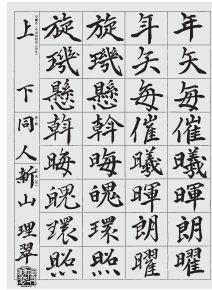 年矢毎催曦暉朗曜
年矢毎催曦暉朗曜
旋璣懸斡晦魄環照
旋璣懸斡晦魄環照
上 下同人新山理翠